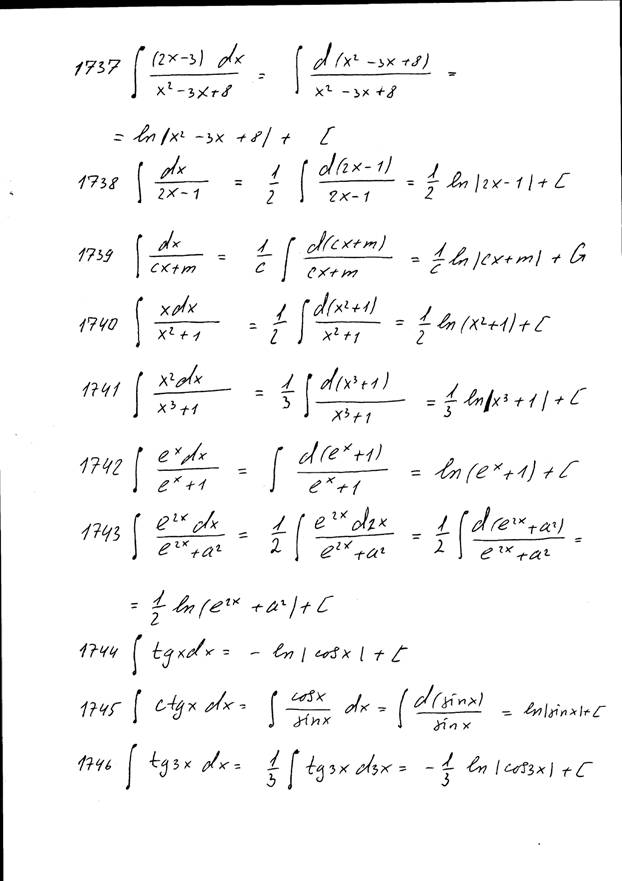 1737 ∫ (2x-3) dx / x²-3x+8 = ∫ d(x²-3x+8) / x²-3x+8 =
= ln|x²-3x+8| + C
1738 ∫ dx / 2x-1 = 1/2 ∫ d(2x-1) / 2x-1 = 1/2 ln|2x-1| + C
1739 ∫ dx / cx+m = 1/c ∫ d(cx+m) / cx+m = 1/c ln|cx+m| + G
1740 ∫ xdx / x²+1 = 1/2 ∫ d(x²+1) / x²+1 = 1/2 ln(x²+1) + C
1741 ∫ x²dx / x³+1 = 1/3 ∫ d(x³+1) / x³+1 = 1/3 ln|x³+1| + C
1742 ∫ eˣdx / eˣ+1 = ∫ d(eˣ+1) / eˣ+1 = ln(eˣ+1) + C
1743 ∫ e²ˣdx / e²ˣ+a² = 1/2 ∫ e²ˣd2x / e²ˣ+a² = 1/2 ∫ d(e²ˣ+a²) / e²ˣ+a² =
= 1/2 ln(e²ˣ+a²) + C
1744 ∫ tgxdx = - ln|cosx| + C
1745 ∫ ctgx dx = ∫ cosx / sinx dx = ∫ d(sinx) / sinx = ln|sinx| + C
1746 ∫ tg3x dx = 1/3 ∫ tg3x d3x = - 1/3 ln|cos3x| + C